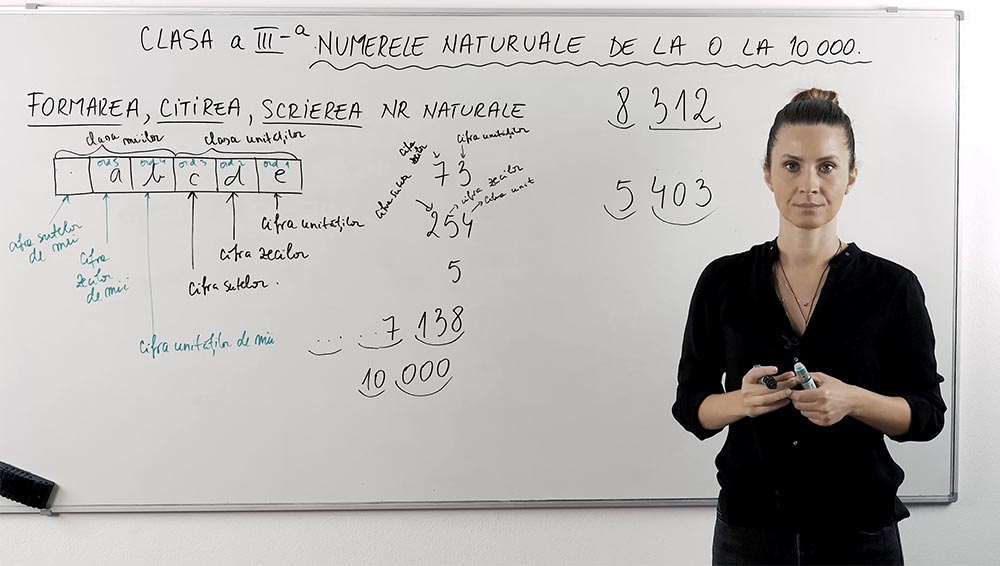 CLASA a III-a NUMERELE NATURUALE DE LA 0 LA 10 000.
FORMAREA, CITIREA, SCRIEREA NR NATURALE
clasa miilor clasa unităților
ord 5 ord 4 ord 3 ord 2 ord 1
. a b c d e
cifra sutelor de mii
cifra zecilor de mii
cifra unităților de mii
cifra sutelor.
cifra zecilor
cifra unităților
cifra zecilor cifra unităților
73
cifra sutelor cifra zecilor
254 cifra unit
5
7 138
10 000
8 312
5 403